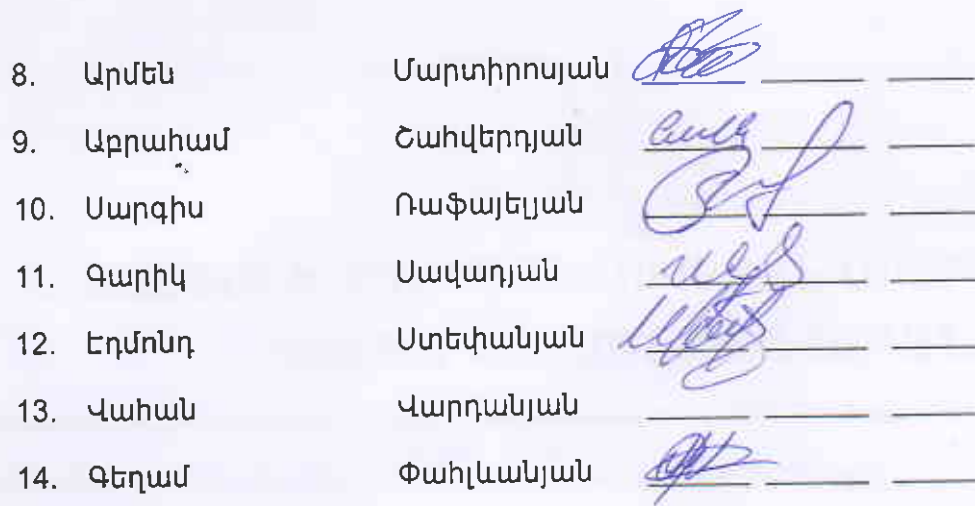 8. Արմեն Մարտիրոսյան
9. Աբրահամ Շահվերդյան
10. Սարգիս Ռաֆայելյան
11. Գարիկ Սավադյան
12. Էդմոնդ Ստեփանյան
13. Վահան Վարդանյան
14. Գեղամ Փահլևանյան